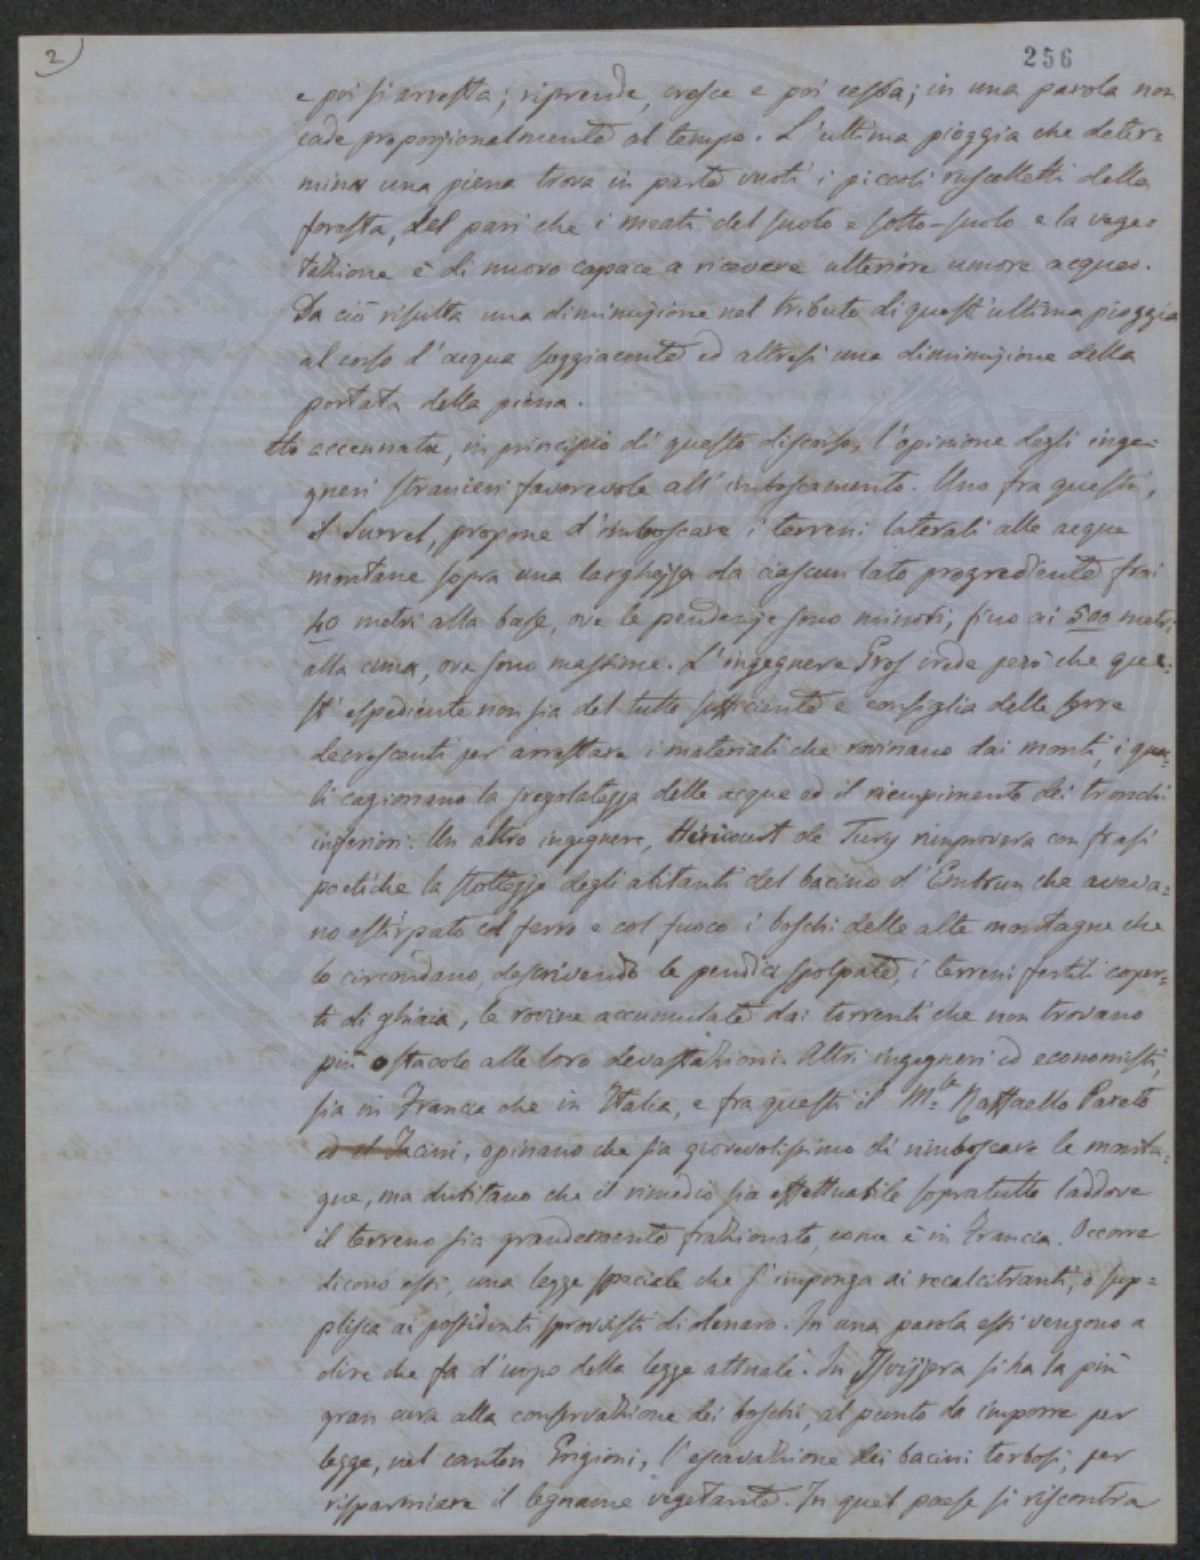 2)
256
e poi si arresta; riprende, cresce e poi cessa; in una parola non
cade proporzionalmente al tempo. L'ultima pioggia che deter=
mina una piena trova in parte vuoti i piccoli ruscelletti della
foresta, del pari che i meati del suolo e sotto-suolo e la vege=
tazione è di nuovo capace a ricevere ulteriore umore acqueo.
Da ciò risulta una diminuzione nel tributo di quest'ultima pioggia
al corso d'acqua soggiacente ed altresì una diminuzione della
portata della piena.
Ho accennata, in principio di questo discorso, l'opinione degli inge=
gneri stranieri favorevole all'imboscamento. Uno fra questi,
il Surrel, propone d'imboscare i terreni laterali alle acque
montane sopra una larghezza da ciascun lato progrediente frai
40 metri alla base, ove le pendenze sono minori, fino ai 500 metri
alla cima, ove sono massime. L'ingegnere Gros crede però che que=
st' espediente non sia del tutto sufficiente e consiglia delle serre
decrescenti per arrestare i materiali che rovinano dai monti, i qua=
li cagionano la sregolatezza delle acque ed il riempimento dei tronchi
inferiori. Un altro ingegnere, Héricourt de Tury rimprovera con frasi
poetiche la stoltezza degli abitanti del bacino d'Embrun che aveva=
no estirpato col ferro e col fuoco i boschi delle alte montagne che
lo circondano, descrivendo le pendici spolpate, i terreni fertili coper=
ti di ghiaia, le rovine accumulate dai torrenti che non trovano
più ostacolo alle loro devastazioni. Altri ingegneri ed economisti,
sia in Francia che in Italia, e fra questi il M.se Raffaello Pareto
ed il Jacini, opinano che sia giovevolissimo di rimboscare le monta=
gne, ma dubitano che il rimedio sia effettuabile sopratutto laddove
il terreno sia grandemente frazionato, come è in Francia. Occorre
dicono essi, una legge speciale che s'imponga ai recalcitranti, o sup=
plisca ai possidenti sprovvisti di denaro. In una parola essi vengono a
dire che fa d'uopo della legge attuale. In Isvizzera si ha la più
gran cura alla conservazione dei boschi, al punto da imporre per
legge, nel canton Grigioni, l'escavazione dei bacini torbosi, per
risparmiare il legname vegetante. In quel paese si riscontra